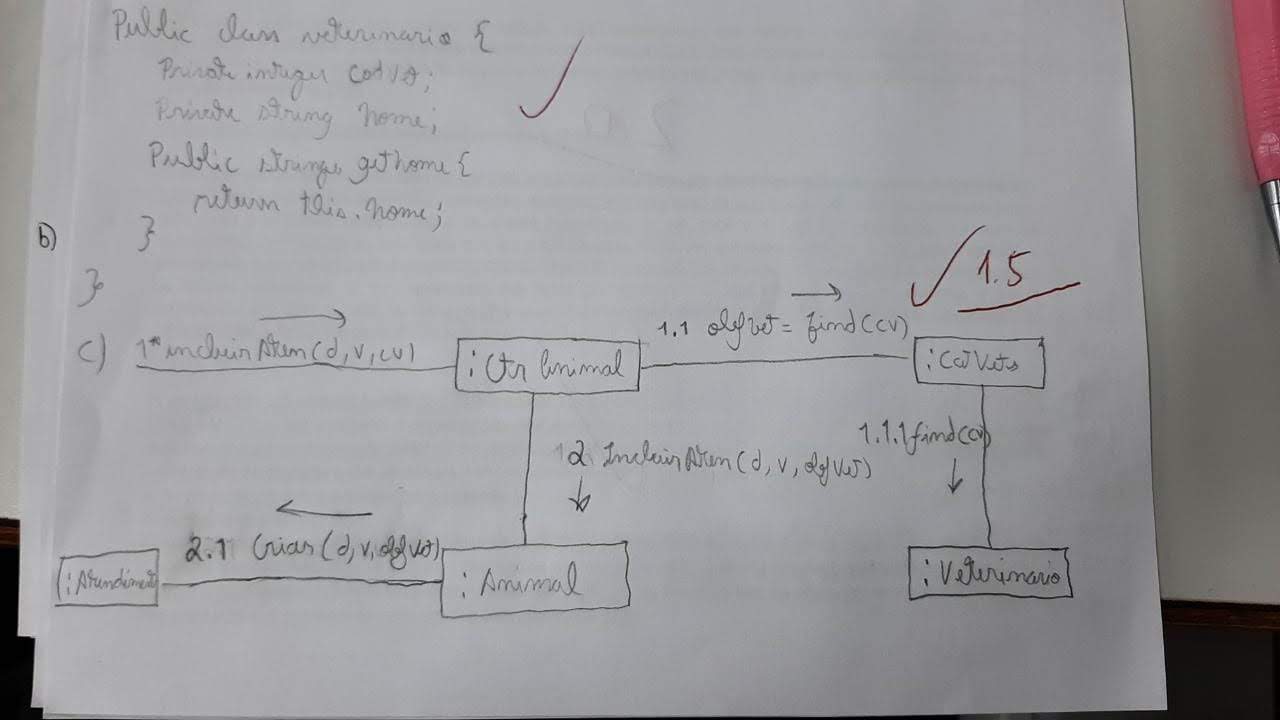 Public class veterinario {
Private integer codvet;
Private string nome;
Public string getnome {
return this.nome;
}
b)
}
1.5
c) 1* incluirAten(d, v, cv)
:Ctr Animal
1.1 objvet = find(cv)
:CatVets
1.1.1 find(cv)
2 IncluirAten(d, v, objVet)
2.1 Criar(d, v, objVet)
:Atendimento
:Animal
:Veterinario